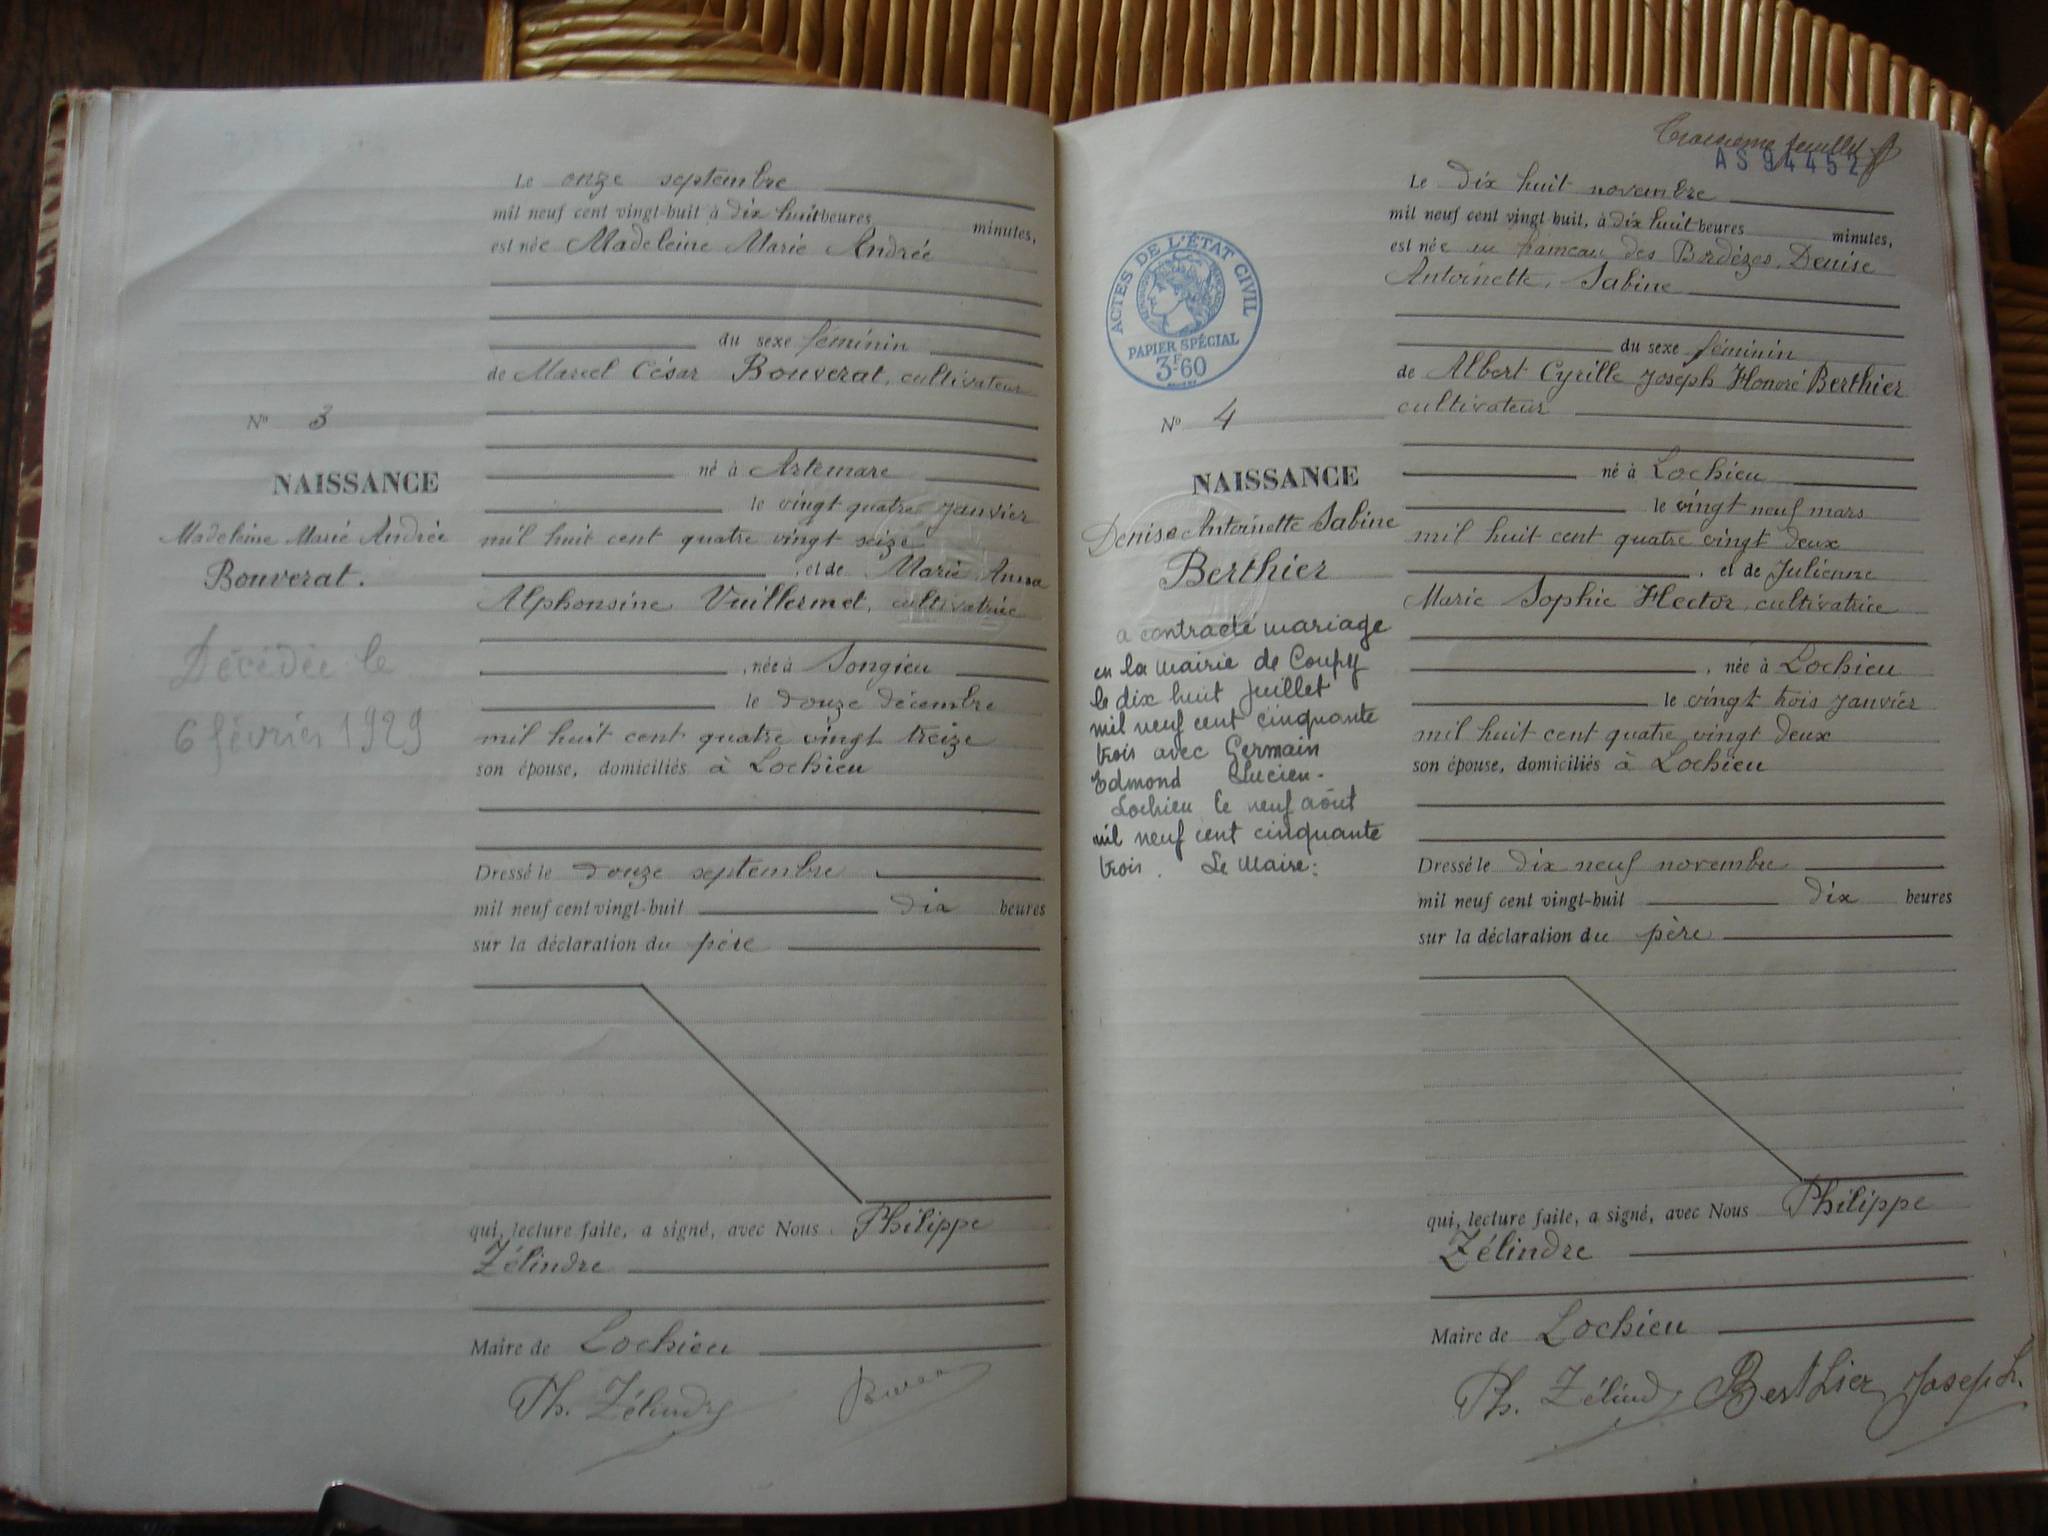 Le onze septembre
mil neuf cent vingt-huit à dix huit heures minutes,
est née Madeleine Marie Andrée
du sexe féminin
de Marcel César Bouverat, cultivateur
N° 3
né à Artemare
NAISSANCE
le vingt quatre janvier
Madeleine Marie Andrée
mil huit cent quatre vingt seize
Bouverat.
, et de Marie Anna
Alphonsine Vuillermet, cultivatrice
Décédée le
, née à Songieu
le douze décembre
6 février 1929
mil huit cent quatre vingt treize
son épouse, domiciliés à Lochieu
Dressé le douze septembre
mil neuf cent vingt-huit dix heures
sur la déclaration du père
qui, lecture faite, a signé, avec Nous Philippe
Zélindre
Maire de Lochieu
Ph. Zélindre
Troisième feuillet
AS94452
Le dix huit novembre
mil neuf cent vingt-huit, à dix huit heures minutes,
est née au hameau des Bordèzes, Denise
Antoinette, Sabine
ACTES DE L'ÉTAT CIVIL
PAPIER SPÉCIAL
3F60
du sexe féminin
de Albert Cyrille Joseph Honoré Berthier
cultivateur
N° 4
né à Lochieu
NAISSANCE
le vingt neuf mars
Denise Antoinette Sabine
mil huit cent quatre vingt deux
Berthier
, et de Julienne
Marie Sophie Hector, cultivatrice
a contracté mariage
en la mairie de Coupy
le dix huit juillet
mil neuf cent cinquante
trois avec Germain
Edmond Lucien.
Lochieu le neuf août
mil neuf cent cinquante
trois. Le Maire:
, née à Lochieu
le vingt trois janvier
mil huit cent quatre vingt deux
son épouse, domiciliés à Lochieu
Dressé le dix neuf novembre
mil neuf cent vingt-huit dix heures
sur la déclaration du père
qui, lecture faite, a signé, avec Nous Philippe
Zélindre
Maire de Lochieu
Ph. Zélindre Berthier Joseph.